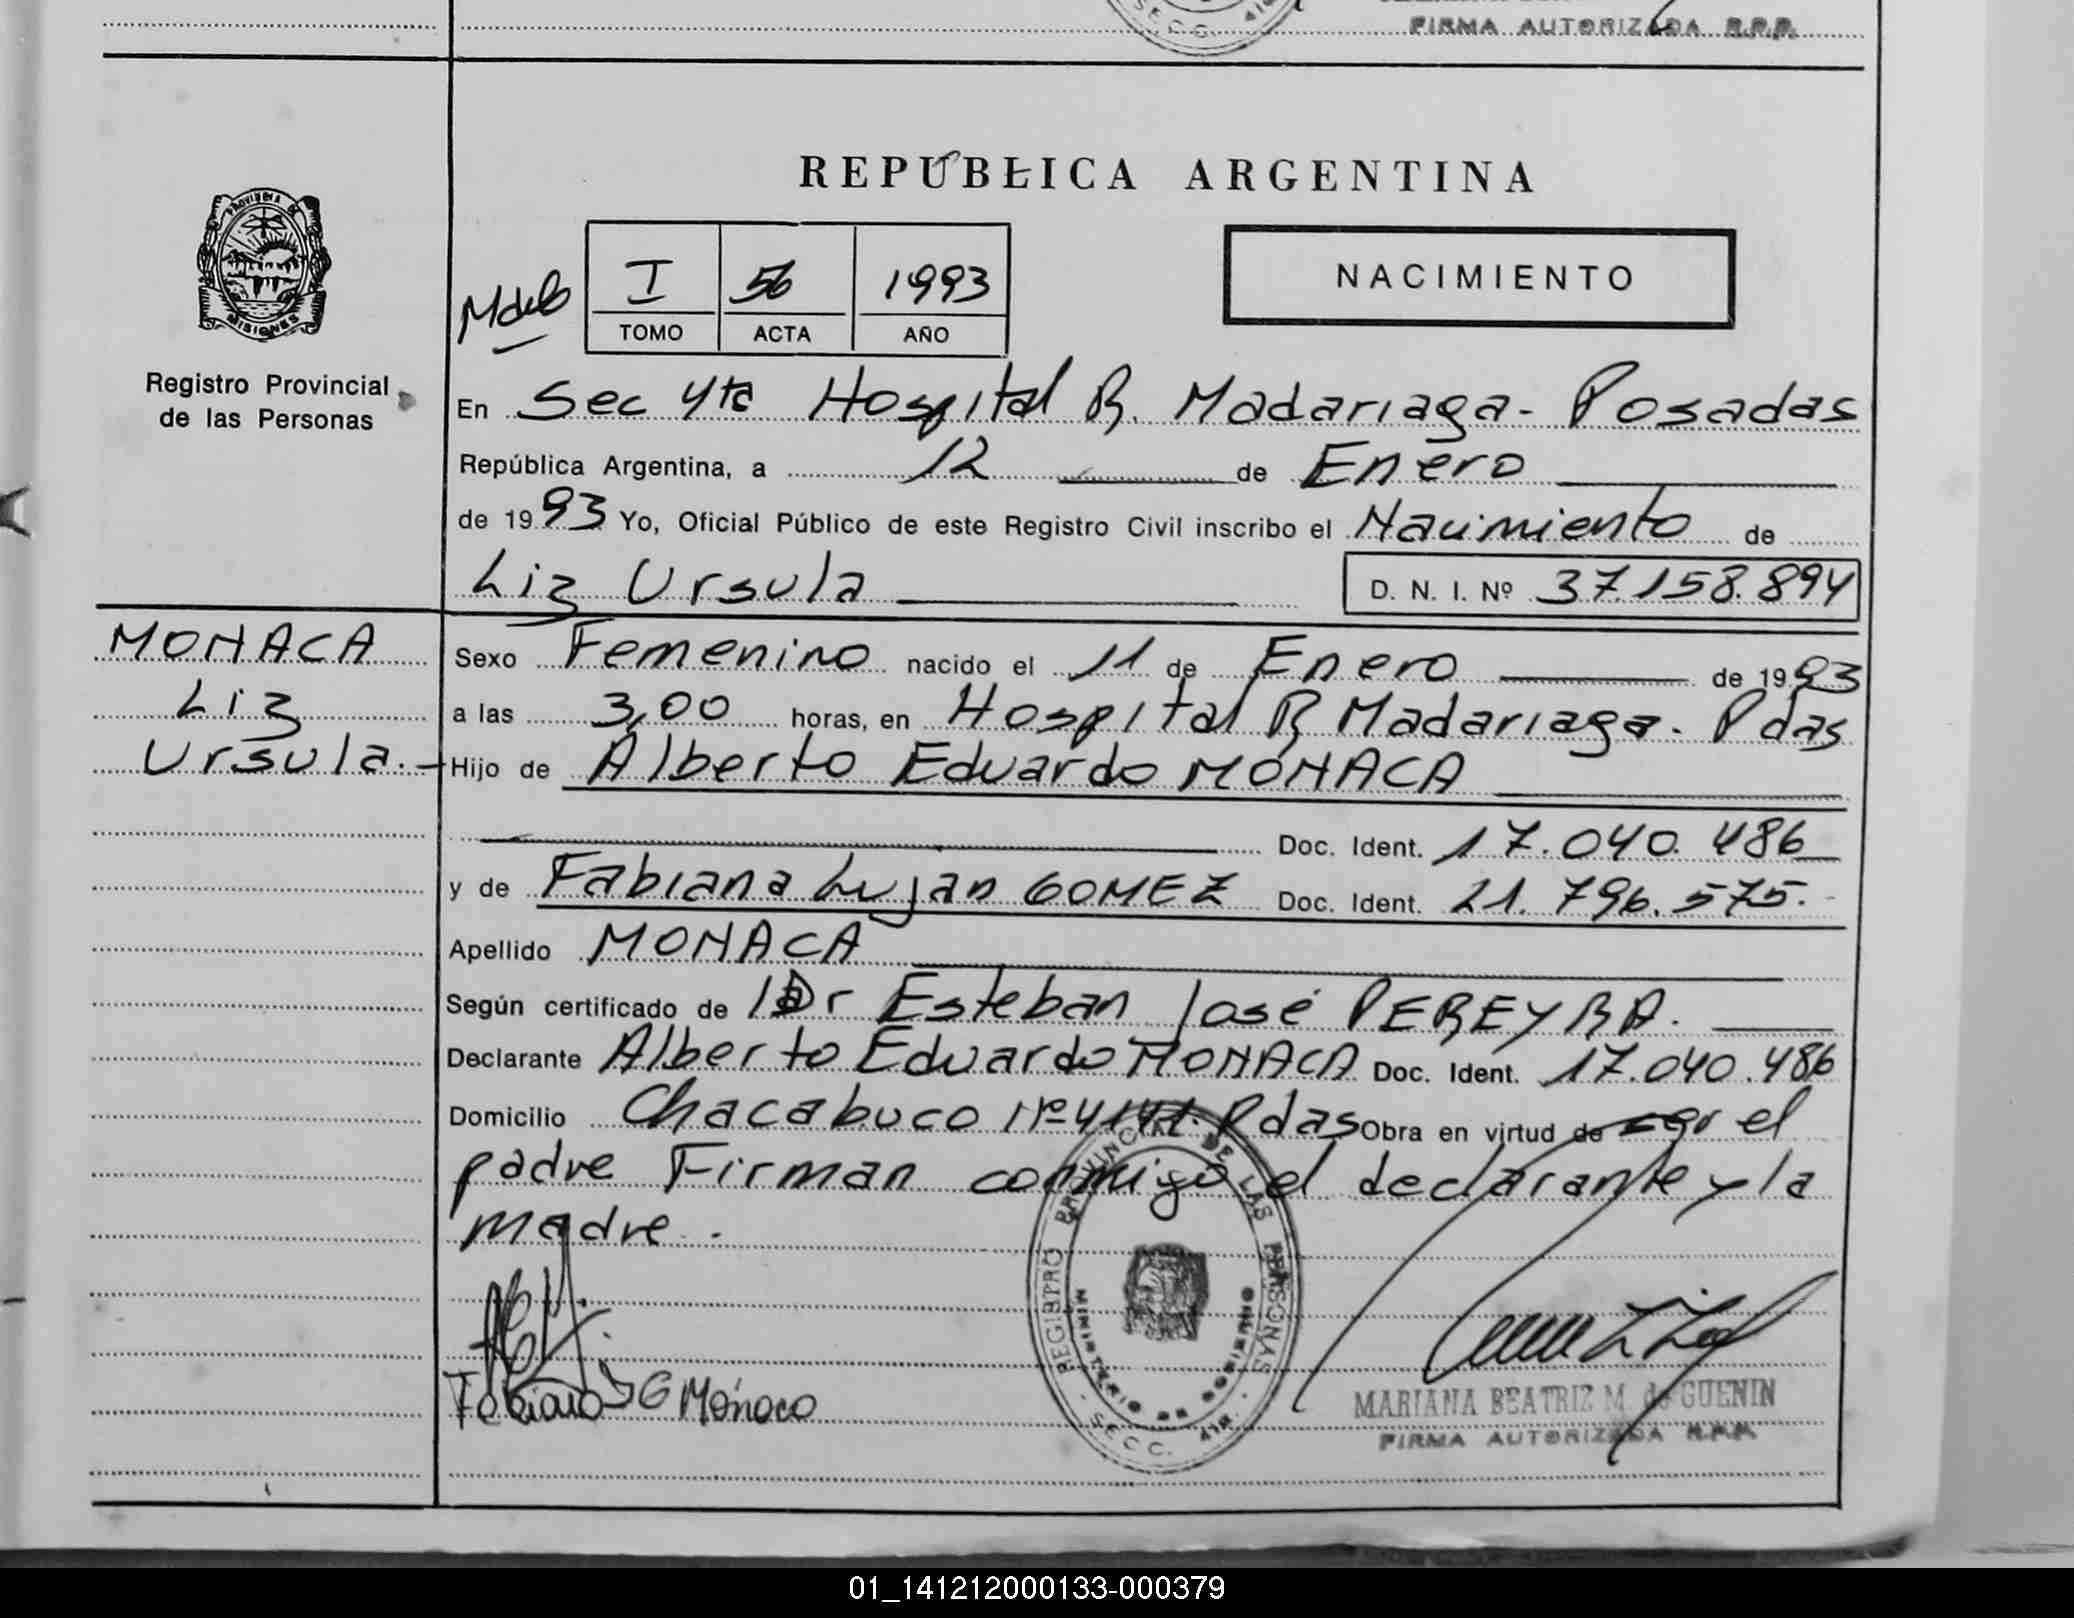 SECC. 4ta
FIRMA AUTORIZADA R.P.P.
REPÚBLICA ARGENTINA
PROVINCIA DE
MISIONES
Registro Provincial
de las Personas
I 56 1993
TOMO ACTA AÑO
NACIMIENTO
En Sec 4ta Hospital R. Madariaga - Posadas
República Argentina, a 12 de Enero
de 1993 Yo, Oficial Público de este Registro Civil inscribo el Nacimiento de
Liz Ursula D. N. I. Nº 37.158.894
MONACA
Liz
Ursula.-
Sexo Femenino nacido el 11 de Enero de 1993
a las 3,00 horas, en Hospital R Madariaga - Pdas
Hijo de Alberto Eduardo MONACA
Doc. Ident. 17.040.486
y de Fabiana Lujan GOMEZ Doc. Ident. 21.796.575.-
Apellido MONACA
Según certificado de Dr Esteban José PEREYRA.
Declarante Alberto Eduardo MONACA Doc. Ident. 17.040.486
Domicilio Chacabuco Nº 4141. Pdas Obra en virtud de ser el
padre Firman conmigo el declarante y la
madre.
REGISTRO PROVINCIAL DE LAS PERSONAS
MINISTERIO DE GOBIERNO
SECC. 4ta
Fabiana G Mónaco
MARIANA BEATRIZ M. de GUENIN
FIRMA AUTORIZADA R.P.P.
01_141212000133-000379